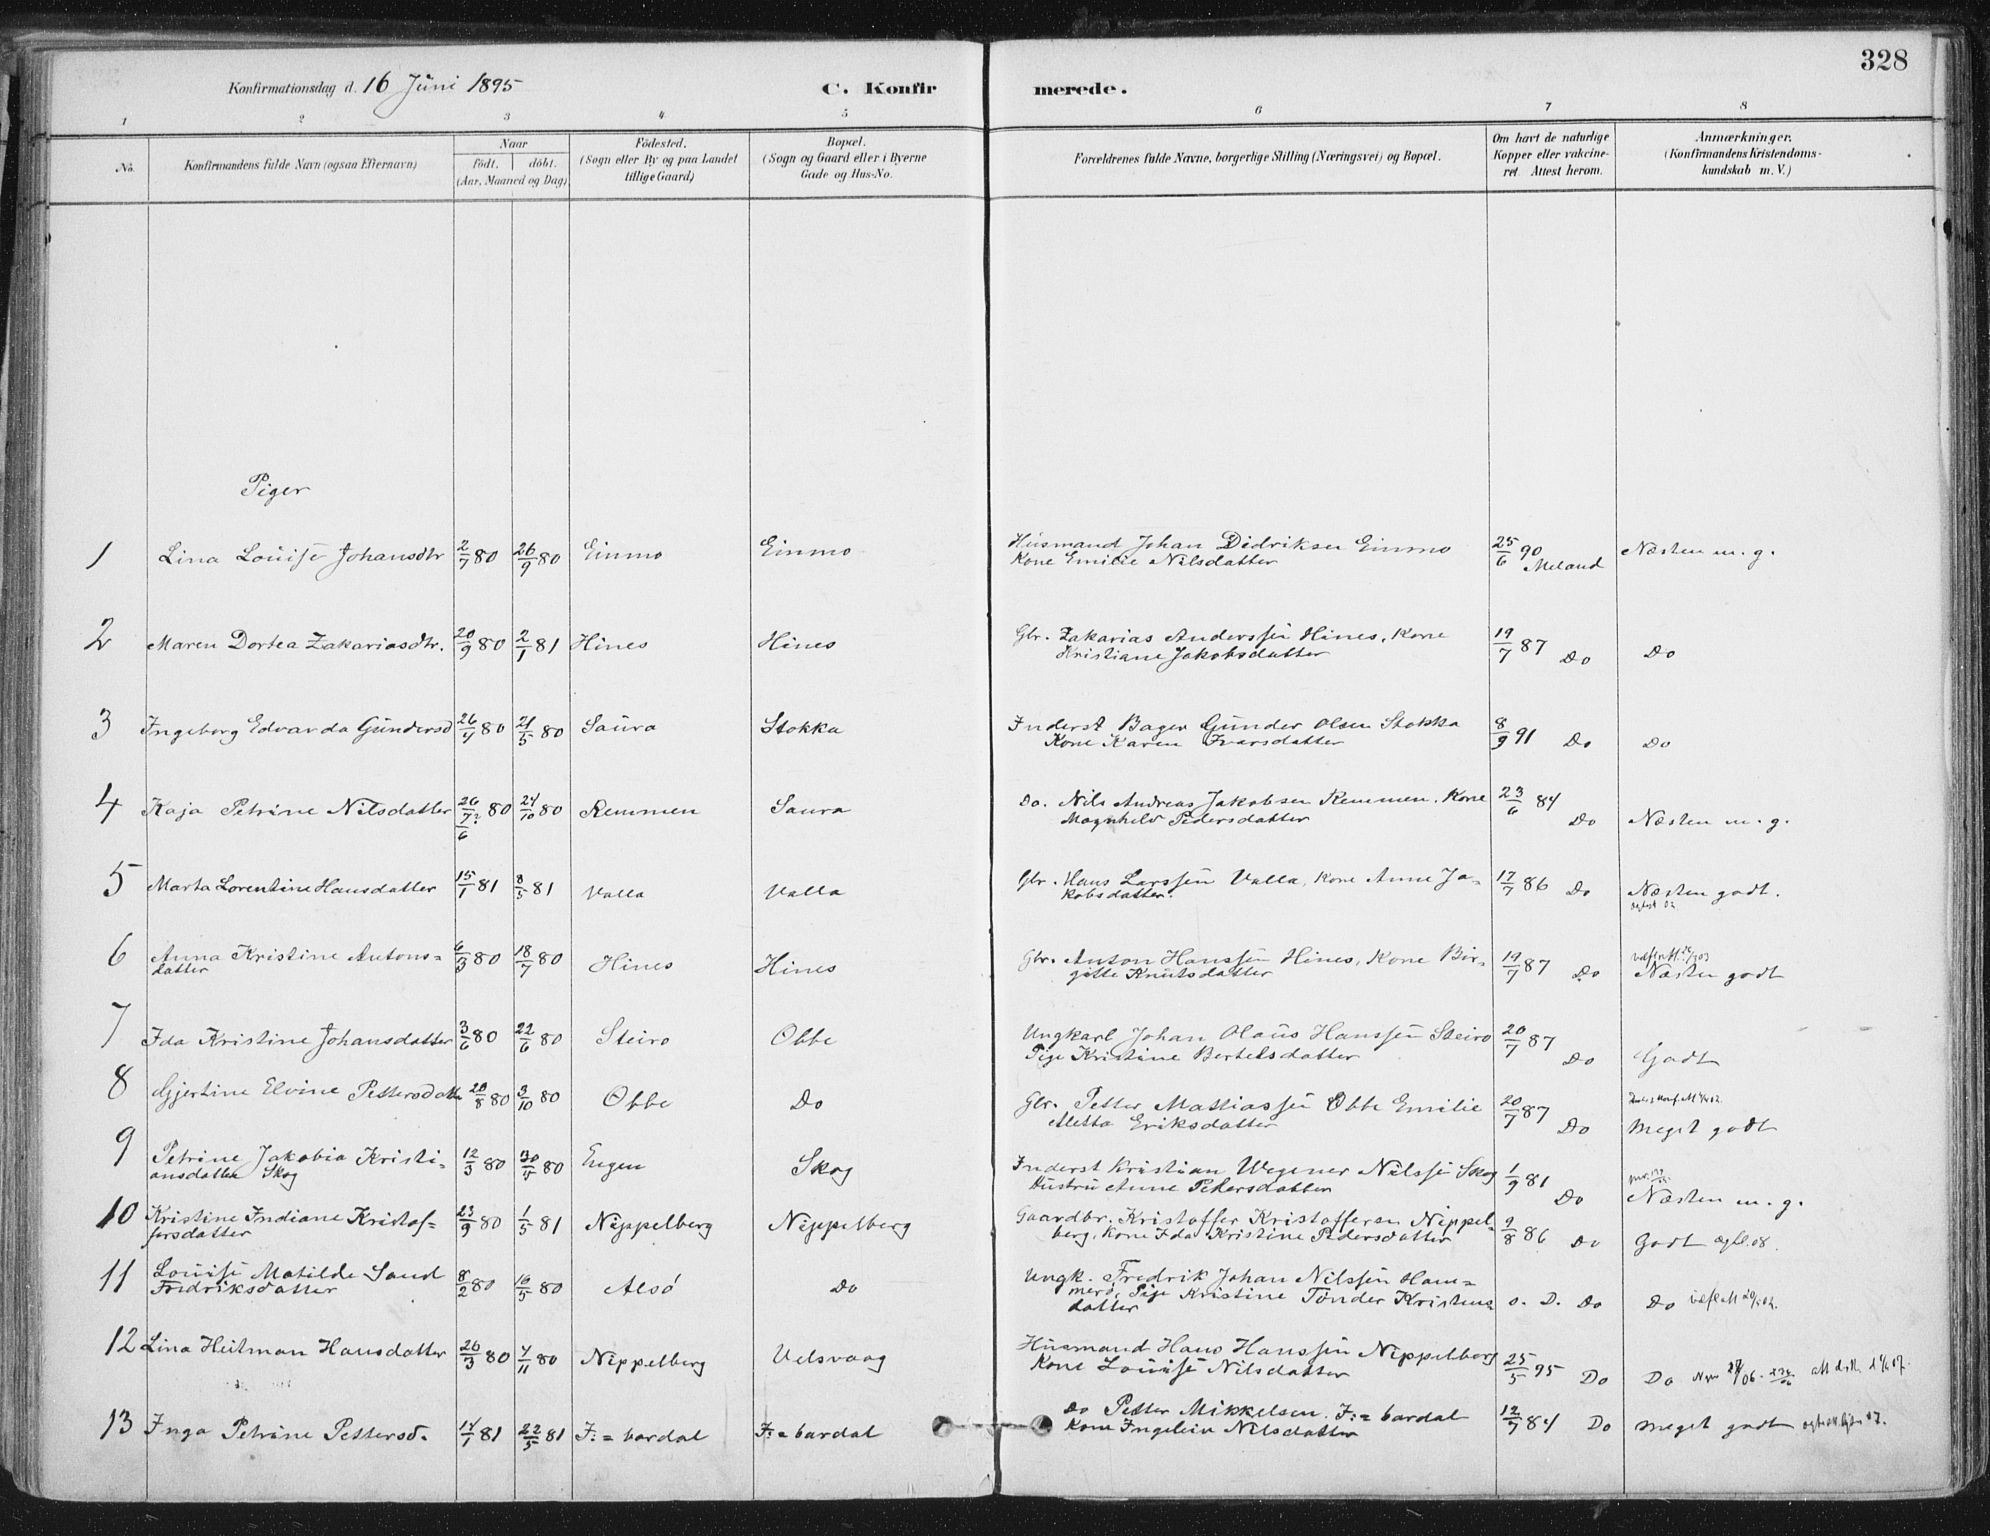 328
Konfirmationsdag d. 16 Juni 1895 C. Konfirmerede.
1 2 3 4 5 6 7 8
No. Konfirmandens fulde Navn (ogsaa Efternavn) Naar født. døbt. (Aar, Maaned og Dag) Fødested. (Sogn eller By og paa Landet tillige Gaard) Bopæl. (Sogn og Gaard eller i Byerne Gade og Hus-No. Forældrenes fulde Navne, borgerlige Stilling (Næringsvei) og Bopæl. Om havt de naturlige Kopper eller vakcineret Attest herom. Anmærkninger. (Konfirmandens Kristendomskundskab m. V.)
Piger
1 Lina Louise Johansdtr 2/7 80 26/9 80 Einmo Einmo Husmand Johan Didriksen Einmo 25/6 90 Meland Næsten m. g.
Kone Emilie Nilsdatter
2 Maren Dortea Zakariasdtr. 20/9 80 2/1 81 Hines Hines Gbr. Zakarias Anderssen Hines, Kone 19/7 87 Do Do
Kristiane Jakobsdatter
3 Ingeborg Edvarda Gundersd 26/4 80 21/5 80 Saura Stokka Inderst Bager Gunder Olsen Stokka 8/9 91 Do Do
Kone Karen Ivarsdatter
4 Kaja Petrine Nilsdatter 26/7? 80 24/10 80 Remmen Saura Do. Nils Andreas Jakobsen Remmen, Kone 23/6 84 Do Næsten m. g.
6 Magnhild Pedersdatter
5 Marta Lorentine Hansdatter 15/1 81 8/5 81 Valla Valla Gbr. Hans Larssen Valla, Kone Anne Ja- 17/7 86 Do Næsten godt.
kobsdatter.
6 Anna Kristine Antons= 6/3 80 18/7 80 Hines Hines Gbr. Anton Hanssen Hines, Kone Bir- 19/7 87 Do Næsten godt
datter gitte Knutsdatter
7 Ida Kristine Johansdatter 3/6 80 22/6 80 Steiro Obbe Ungkarl Johan Olaus Hanssen Steiro 20/7 87 Do Godt
Pige Kristine Bertelsdatter
8 Gjertine Elvine Pettersdatter 20/8 80 3/10 80 Obbe Do Gbr. Petter Mattiassen Obbe Emilie 20/7 87 Do Meget godt
Aletta Eriksdatter
9 Petrine Jakobia Kristi- 12/3 80 30/5 80 Engen Skog Inderst Kristian Wegener Nilssen Skog 1/9 81 Do Næsten m. g.
ansdatter Skog Hustru Anne Petersdatter
10 Kristine Indiane Kristof- 23/9 80 1/5 81 Nippelberg Nippelberg Gaardbr. Kristoffer Kristoffersen Nippel- 9/8 86 Do Godt
fersdatter berg, Kone Ida Kristine Pedersdatter
11 Louise Matilde Sand 8/2 80 16/5 80 Alsø Do Ungk. Fredrik Johan Nilssen Ham= o. D. Do Do
Fredriksdatter merø, Pige Kristine Tønder Kristens
datter
12 Lina Heitman Hansdatter 26/3 80 7/11 80 Nippelberg Velsvaag Husmand Hans Hanssen Nippelberg 25/5 95 Do Do
Kone Louise Nilsdatter
13 Inga Petrine Pettersd. 14/1 81 22/5 81 I:= bardal I:= bardal Do Petter Mikkelsen. I:= bardal 12/7 84 Do Meget godt
Kone Ingelein Nilsdatter